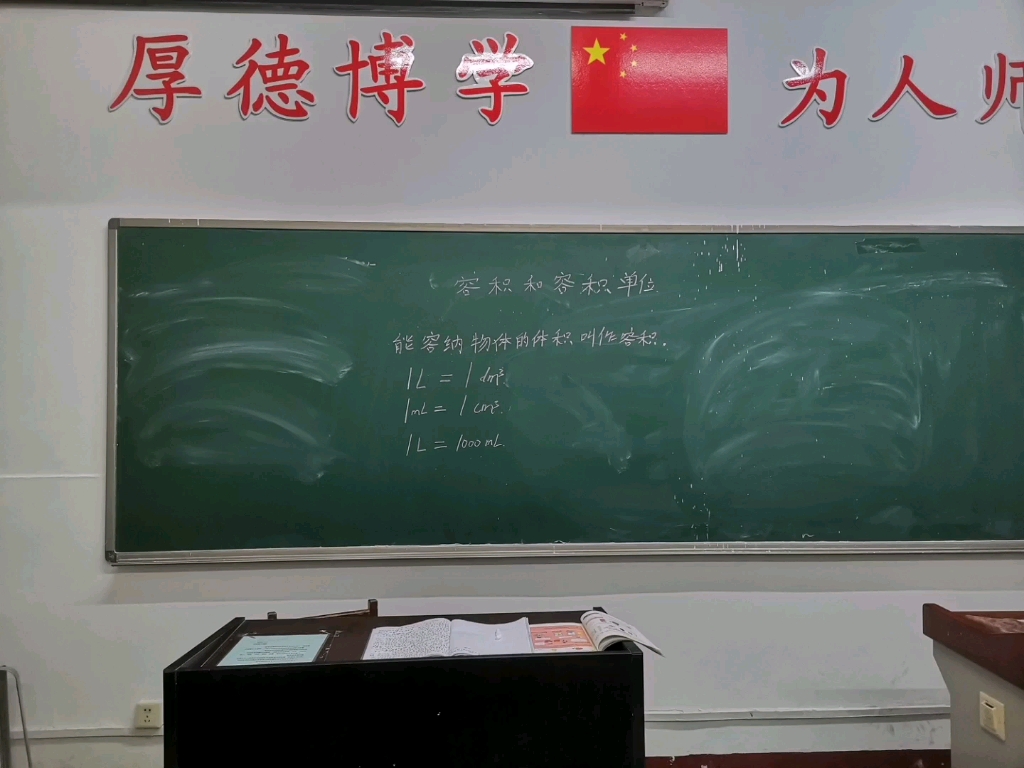 厚德博学 为人师
容积和容积单位
能容纳物体的体积叫作容积.
1L = 1dm³
1mL = 1cm³.
1L = 1000mL.